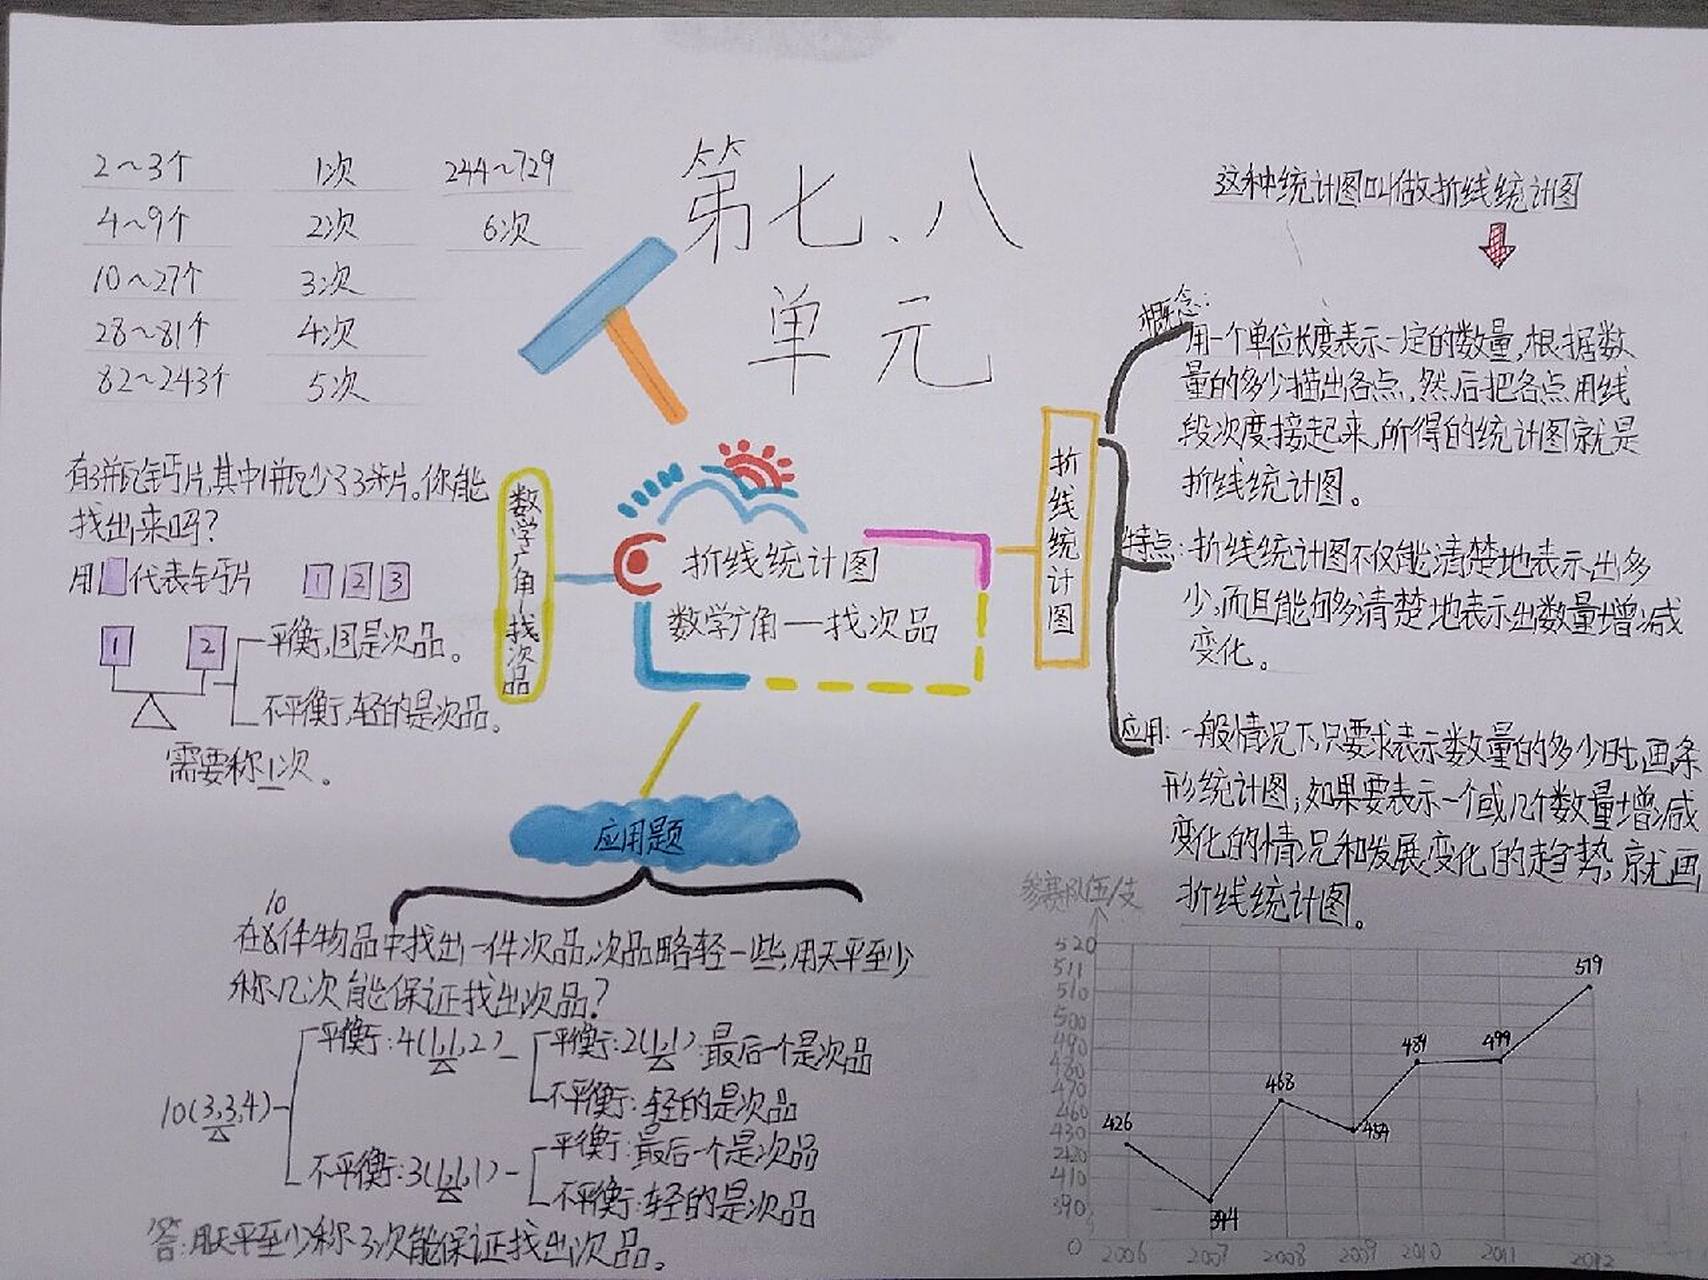 第七、八
单元
2~3个 1次 244~729
4~9个 2次 6次
10~27个 3次
28~81个 4次
82~243个 5次
有3瓶钙片,其中1瓶少了3片。你能
找出来吗?
用 代表钙片 1 2 3
1 2
平衡,3是次品。
不平衡,轻的是次品。
需要称1次。
数学广角—找次品
折线统计图
数学广角—找次品
折线统计图
这种统计图叫做折线统计图
概念:
用一个单位长度表示一定的数量,根据数
量的多少描出各点,然后把各点用线
段次度接起来,所得的统计图就是
折线统计图。
特点:折线统计图不仅能清楚地表示出多
少,而且能够清楚地表示出数量增减
变化。
应用:一般情况下,只要求表示数量的多少时,画条
形统计图;如果要表示一个或几个数量增减
变化的情况和发展变化的趋势,就画
折线统计图。
应用题
10
在件物品中找出一件次品,次品略轻一些,用天平至少
称几次能保证找出次品?
10(3,3,4)
平衡:4(1,1,2)
平衡:2(1,1):最后一个是次品
不平衡:轻的是次品
不平衡:3(1,1,1)
平衡:最后一个是次品
不平衡:轻的是次品
答:用天平至少称3次能保证找出次品。
参赛队伍/支
520
511
510
500
490
480
470
460
430
420
410
390
0
2006 2007 2008 2009 2010 2011 2012
426
394
468
454
489
499
519